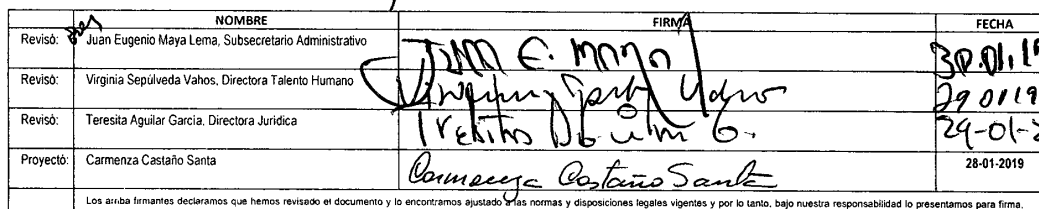 NOMBRE FIRMA FECHA
Revisó: Juan Eugenio Maya Lema, Subsecretario Administrativo Juan E. Maya 30.01.19
Revisó: Virginia Sepúlveda Vahos, Directora Talento Humano 29 0119
Revisó: Teresita Aguilar Garcia, Directora Juridica Teresita Aguilar G. 29-01-2
Proyectó: Carmenza Castaño Santa Carmenza Castaño Santa 28-01-2019
Los arriba firmantes declaramos que hemos revisado el documento y lo encontramos ajustado a las normas y disposiciones legales vigentes y por lo tanto, bajo nuestra responsabilidad lo presentamos para firma.